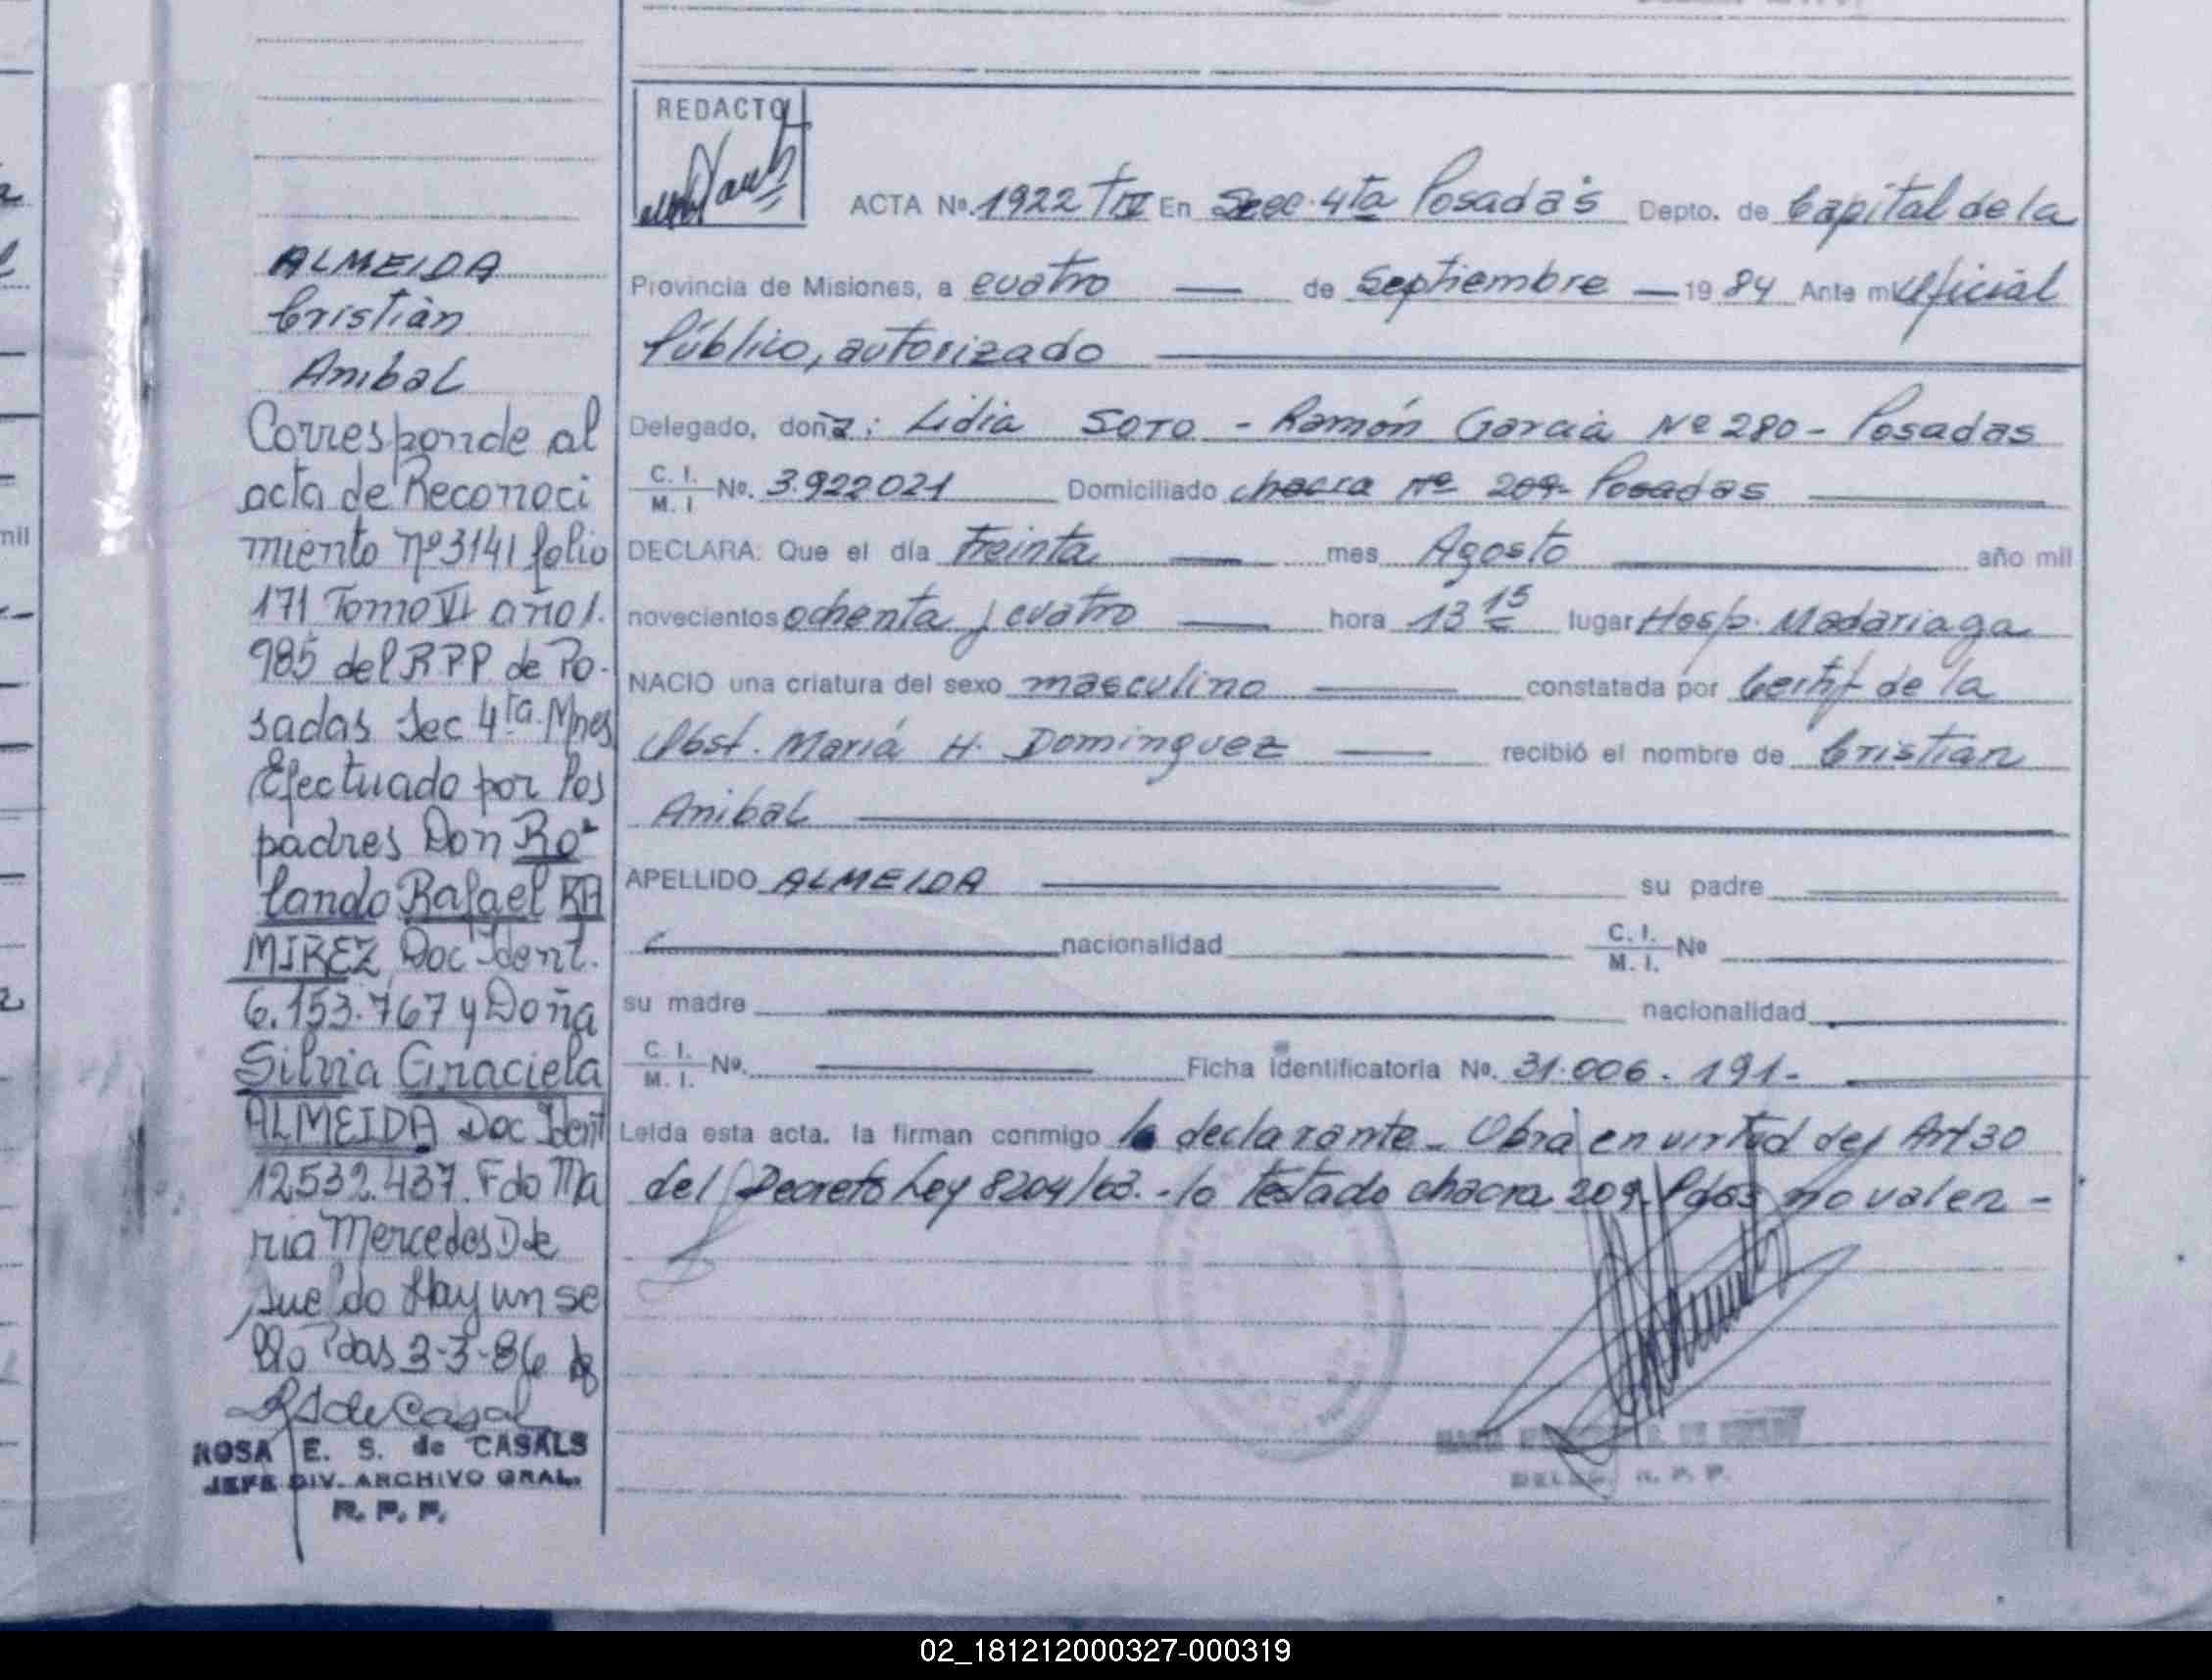 ALMEIDA
Cristián
Anibal
Corresponde al
acta de Reconoci
miento nº 3141 folio
171 Tomo VI año 1.
985 del R.P.P de Po-
sadas Sec 4ta. Mnes
Efectuado por los
padres Don Ro-
lando Rafael RA
MIREZ Doc Ident.
6.153.767 y Doña
Silvia Graciela
ALMEIDA Doc Ident
12.532.437. Fdo Ma
ria Mercedes D de
Sueldo Hay un se
llo Pdas 3-3-86
RS de Casal
ROSA E. S. de CASALS
JEFE DIV. ARCHIVO GRAL.
R. P. P.
REDACTO
ACTA Nº. 1922 TIV En Secc. 4ta Posadas Depto. de Capital de la
Provincia de Misiones, a cuatro — de Septiembre — 19 84 Ante mi Oficial
Público, autorizado
Delegado, doña: Lidia SOTO - Ramón Garcia Nº 280 - Posadas
C. I. M. I No. 3.922021 Domiciliado chacra nº 209- Posadas
DECLARA: Que el día treinta — mes Agosto — año mil
novecientos ochenta y cuatro — hora 13 15 lugar Hosp. Madariaga
NACIO una criatura del sexo masculino — constatada por Certif de la
Obst. Mariá H. Dominguez — recibió el nombre de Cristian
Anibal
APELLIDO ALMEIDA — su padre
nacionalidad C. I. M. I. Nº
su madre nacionalidad
C. I. M. I. Nº. Ficha identificatoria No. 31.006.191-
Leída esta acta. la firman conmigo la declarante_ Obra en virtud del Art 30
del Decreto Ley 8204/63.- lo testado chacra 209- Pdas no valen -
DELEG. R. P. P.
02_181212000327-000319